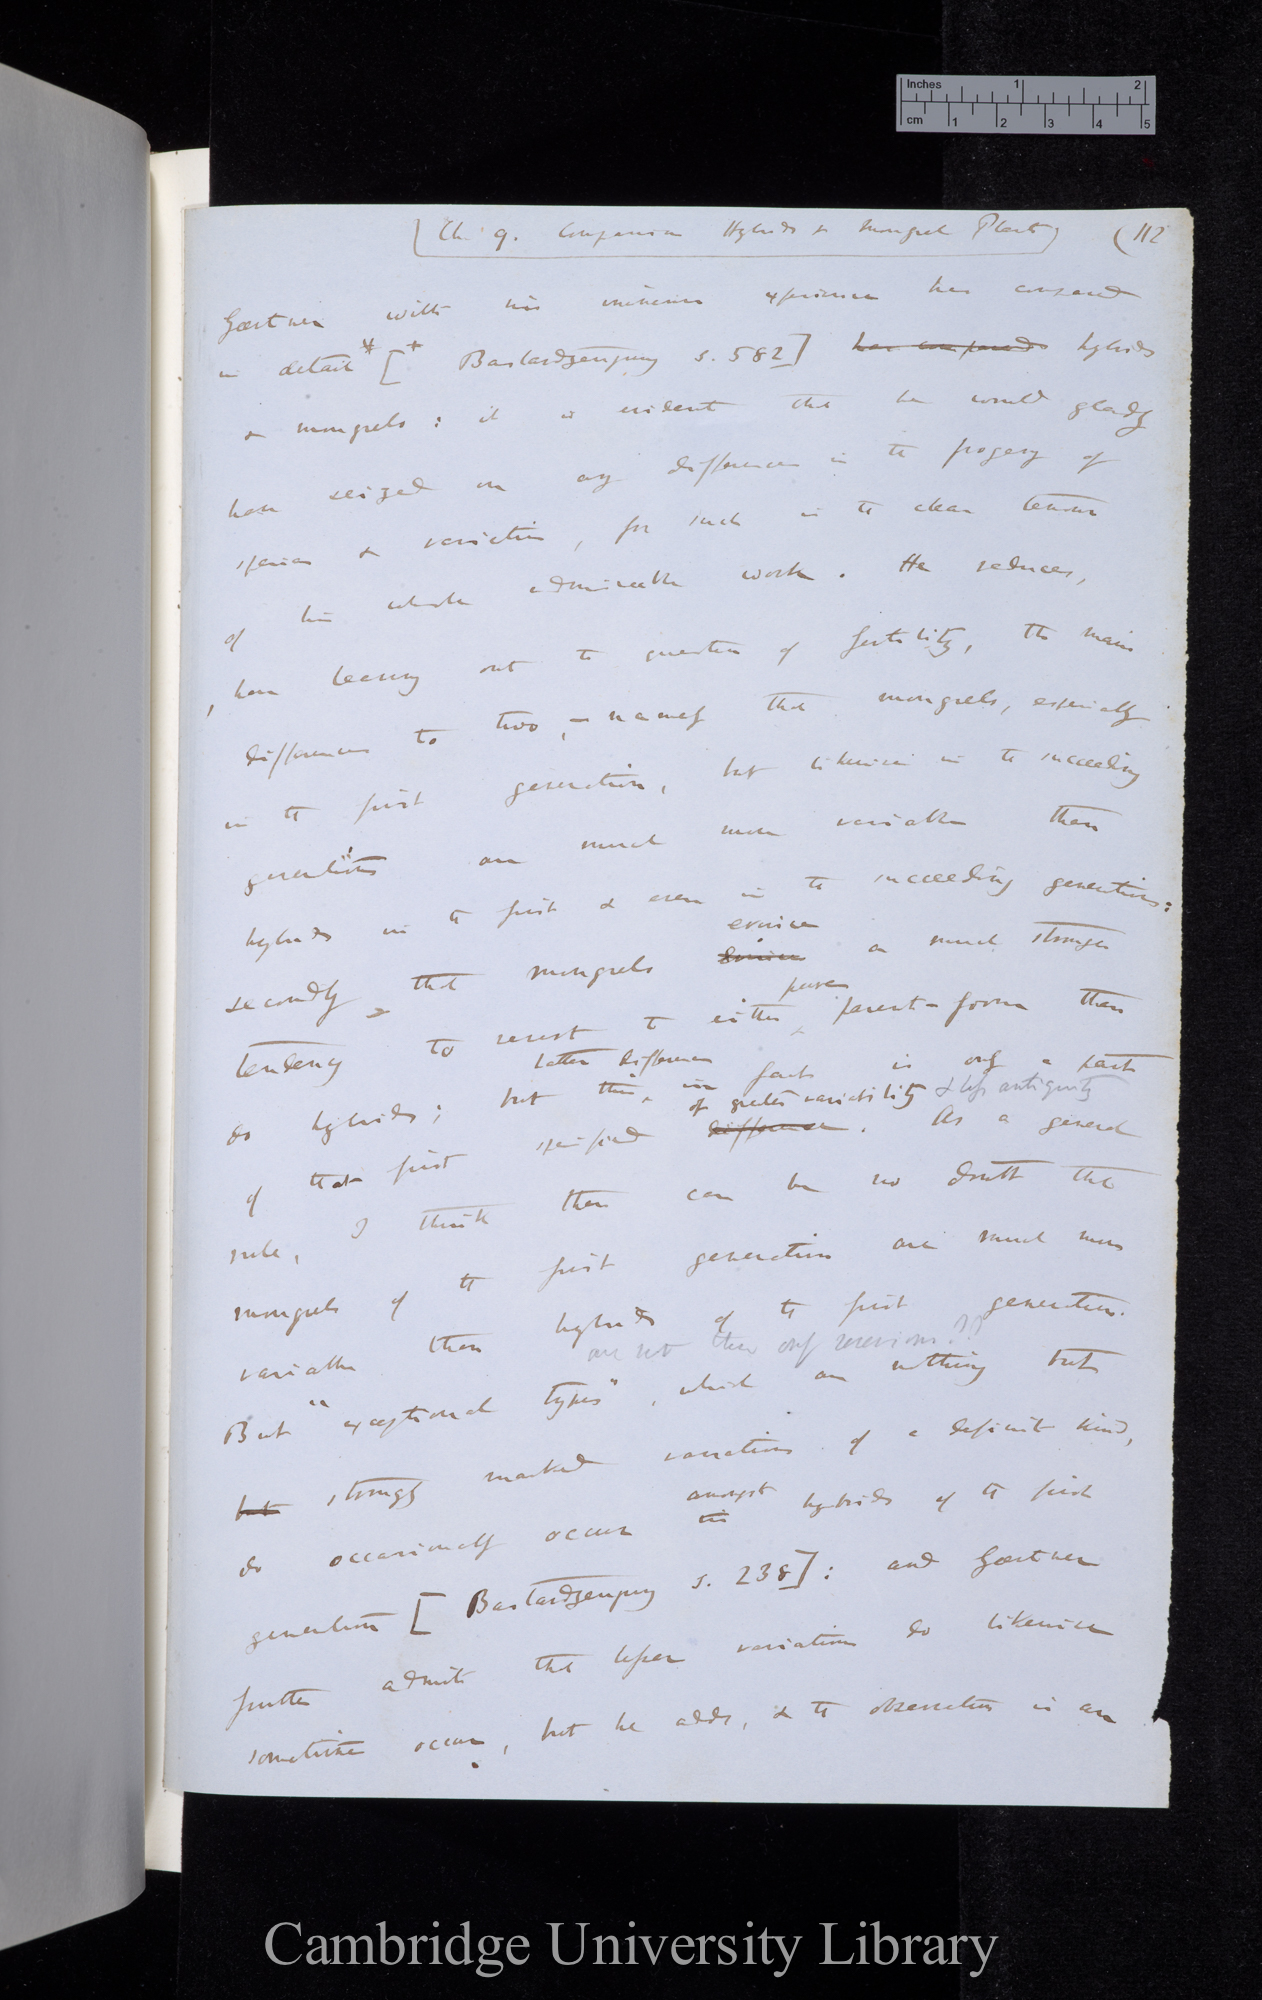 Inches 1 2
cm 1 2 3 4 5
Ch. 9. Comparison Hybrids & Mongrel Plants (112
Gærtner with his experience has compared
in detail * [* Bastardzeugung s. 582] has compared hybrids
& mongrels: it is evident that he would gladly
have seized on any difference in the progeny of
species & varieties, for such is the clear tenour
of his whole admirable work. He reduces,
leaving out the question of fertility, the main
differences to two, – namely that mongrels, especially
in the first generation, but likewise in the succeeding
generations are much more variable than
hybrids in the first & even in the succeeding generations:
evince
secondly, that mongrels a much stronger
pure
tendency to revert to either parent-form than
latter difference
do hybrids; but this in fact is only a part
of greater variability & less antiquity
of that first specified difference. As a general
rule, I think there can be no doubt that
mongrels of the first generation are much more
variable than hybrids of the first generation.
are not these only reversions??
But "exceptional types", which are nothing but
but strongly marked variations of a definite kind,
amongst
do occasionally occur in hybrids of the first
generation [Bastardzeugung s. 238]: and Gærtner
further admits that lesser variations do likewise
sometimes occur, but he adds, & the observation is an
Cambridge University Library